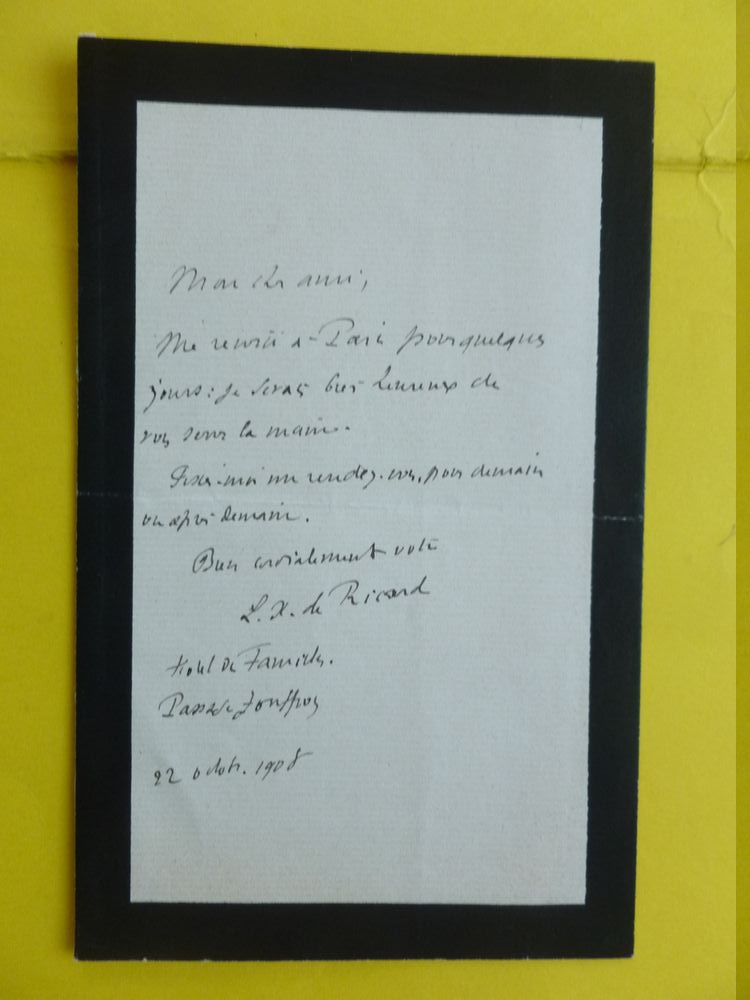 Mon cher ami,
Me voici à Paris pour quelques
jours : je serais très heureux de
vous serrer la main.
Fixez-moi un rendez-vous, pour demain
ou après demain.
Bien cordialement votre
L. X. de Ricard
Hotel de Familles.
Passage Jouffroy
22 octob. 1908